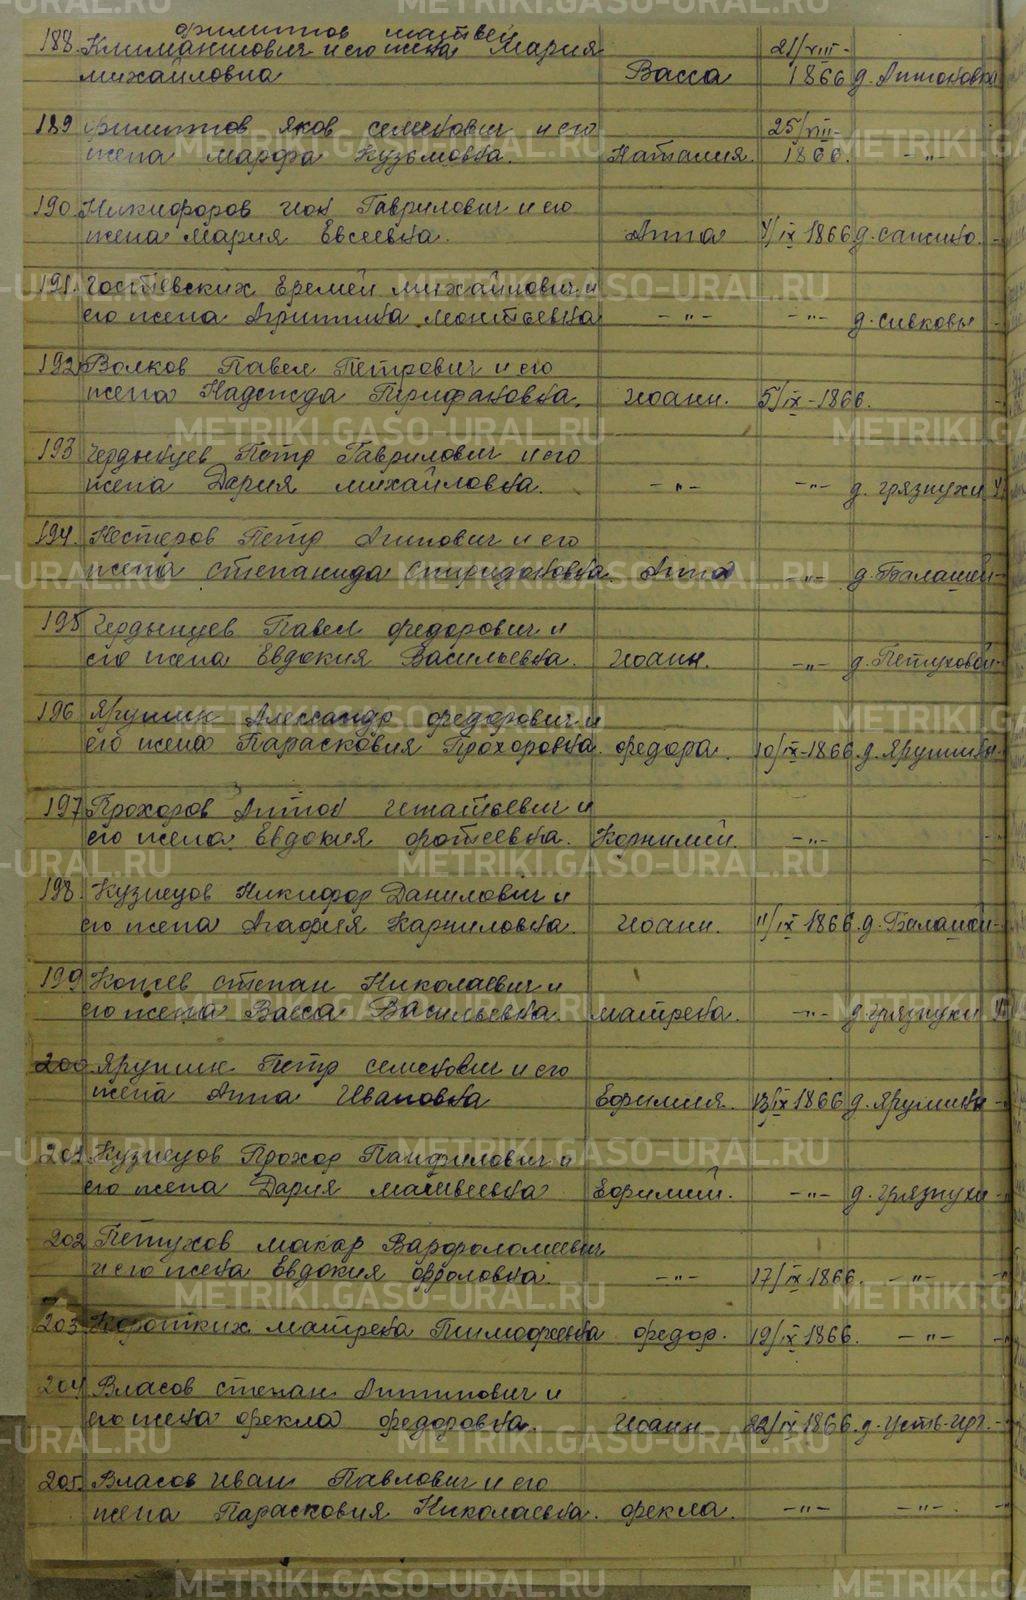 Филиппов Матвей
188. Климантович и его жена Мария 21/VIII-
Михайловна Васса 1866 д. Антоновки
189 Филиппов Яков Семенович и его 25/VIII-
жена Марфа Кузьмовна. Наталия. 1866. -"-
190. Никифоров Иов Гаврилович и его
жена Мария Евсеевна. Анна 4/IX 1866 д. Сапино. -
191. Гостевских Еремей Михайлович и
его жена Агрипина Монтьевна -"- -"- д. Сивковы -
192 Волков Павел Петрович и его
жена Надежда Трифановна. Иоанн. 5/IX-1866. -
193 Чердынцев Петр Гаврилович и его
жена Дария Михайловна. -"- -"- д. Грязнухи
194. Нестеров Петр Агипович и его
жена Степанида Спиридоновна. Анна -"- д. Балашей-
195 Чердынцев Павел Федорович и
его жена Евдокия Васильевна. Иоанн. -"- д. Петуховой-
196 Ярушик Александр Федорович и
его жена Парасковия Прохоровна. Федора. 10/IX-1866. д. Ярушины-
197 Прохоров Антон Игнатьевич и
его жена Евдокия Фотеевна. Корнилий. -"- -
198. Кузнецов Никифор Данилович и
его жена Агафия Карниловна. Иоанн. 11/IX 1866. д. Балашей-
199 Копьев Степан Николаевич и
его жена Васса Васильевна. Матрена. -"- д. Грязнухи
200 Ярушик Петр Семенович и его
жена Анна Ивановна Ефимия. 13/IX 1866 д. Ярушины -
201 Кузнецов Прохор Панфилович и
его жена Дария Матвеевна Ефимий. -"- д. Грязнухи -
202 Петухов Макар Варфоломеевич
и его жена Евдокия Фроловна. -"- 17/IX 1866. -"- -
203 Коротких Матрена Тимофеевна Федор. 19/IX 1866. -"- -
204 Власов Степан Антипович и
его жена Фекла Федоровна. Иоанн 22/IX 1866. д. Усть-Ирг. -
205. Власов Иван Павлович и его
жена Парасковия Николаевна. Фекла. -"- -"-. -
METRIKI.GASO-URAL.RU